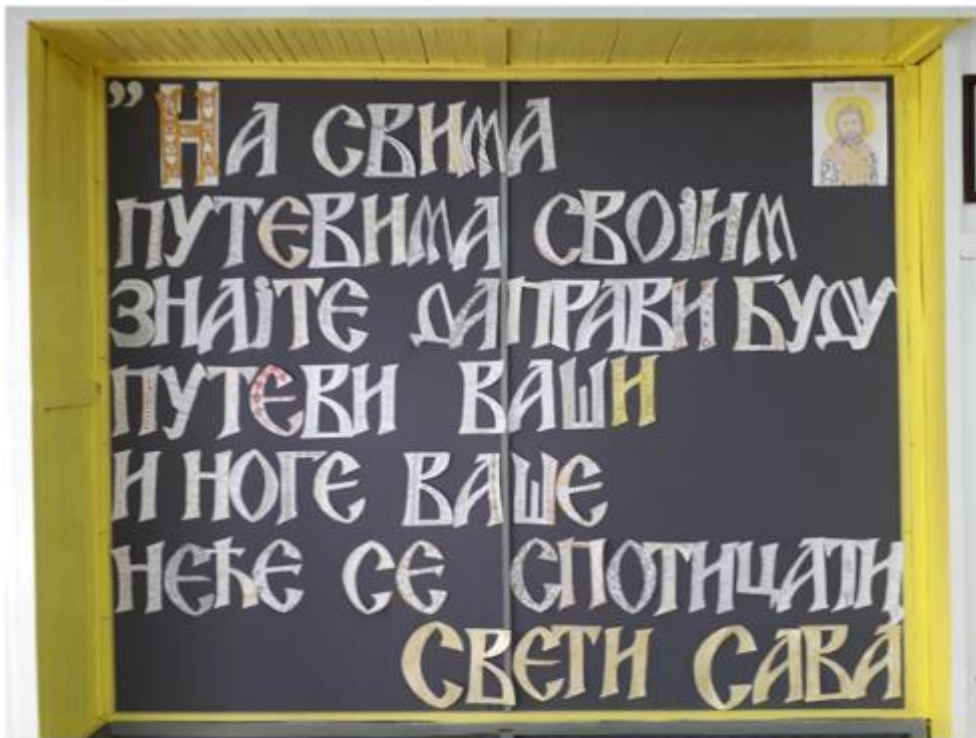 ”НА СВИМА
ПУТЕВИМА СВОЈИМ
ЗНАЈТЕ ДА ПРАВИ БУДУ
ПУТЕВИ ВАШИ
И НОГЕ ВАШЕ
НЕЋЕ СЕ СПОТИЦАТИ
СВЕТИ САВА